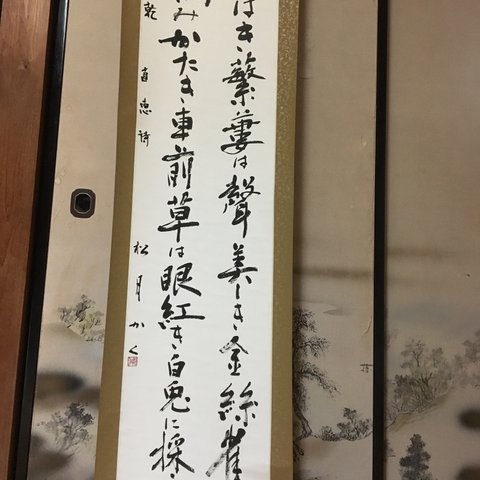 はき蘩蔞は聲美しき金絲雀
みかたき車前草は眼紅き白兎に採
乾 直恵 詩 松月かく